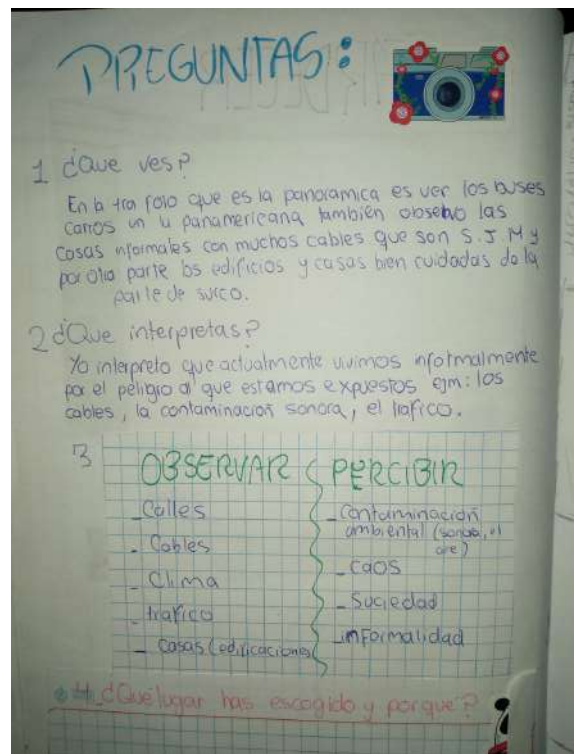 PREGUNTAS:
1 ¿Que ves?
En la tra foto que es la panoramica es ver los buses
carros un la panamericana también observo las
Cosas informales con muchos cables que son S.J.M y
por otra parte los edificios y casas bien cuidadas de la
parte de surco.
2 ¿Que interpretas?
Yo interpreto que actualmente vivimos informalmente
por el peligro al que estamos expuestos ejm: los
cables, la contaminación sonora, el trafico.
3
OBSERVAR
_Calles
- Cables
- Clima
- trafico
- casas (edificaciones)
PERCIBIR
_Contaminación
ambiental (sonora, el
aire)
_caos
_Sociedad
_informalidad
4 ¿Que lugar has escogido y porque?